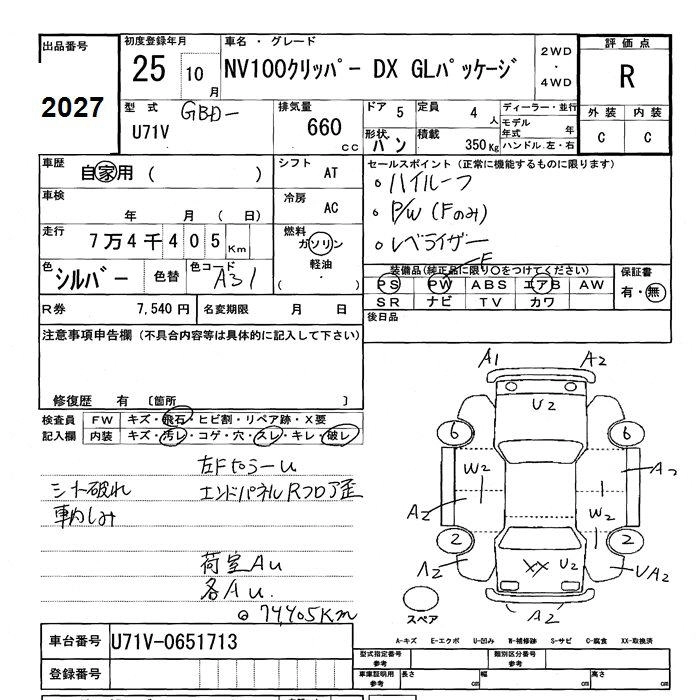 出品番号 初度登録年月 車名・グレード 評価点
2027 25 10月 NV100クリッパー DX GLパッケージ 2WD・4WD R
型式 GBD- 排気量 ドア 5 定員 4人 ディーラー・並行 外装 内装
U71V 660cc 形状 バン 積載 350Kg モデル年式 年 C C
ハンドル.左・右
車歴 自家用( ) シフト AT セールスポイント(正常に機能するものに限ります)
・ハイルーフ
車検 年 月(日) 冷房 AC ・P/W(Fのみ)
走行 7万4千405Km 燃料 ガソリン ・レベライザー
軽油・( )
色 シルバー 色替 色コード A31 F
装備品(純正品に限り○をつけてください) 保証書
PS PW ABS エアB AW 有・無
SR ナビ TV カワ
R券 7,540円 名変期限 月 日 後日品
注意事項申告欄(不具合内容等は具体的に記入して下さい)
修復歴 有 〔箇所 〕
検査員 FW キズ・飛石・ヒビ割・リペア跡・X要
記入欄 内装 キズ・汚レ・コゲ・穴・スレ・キレ・破レ
シート破れ エンドパネルRフロア歪
荷室AU
各AU
◎74,405Km
A1 A2
U2
6 6
W2 A2
A2 W2
2 2
A2 XX U2 UA2
A2
スペア
A-キズ E-エクボ U-凹み W-補修跡 S-サビ C-腐食 XX-取換済
車台番号 U71V-0651713 型式指定番号 参考 類別区分番号 参考
登録番号 車庫証明用 参考 長さ cm 幅 cm 高さ cm